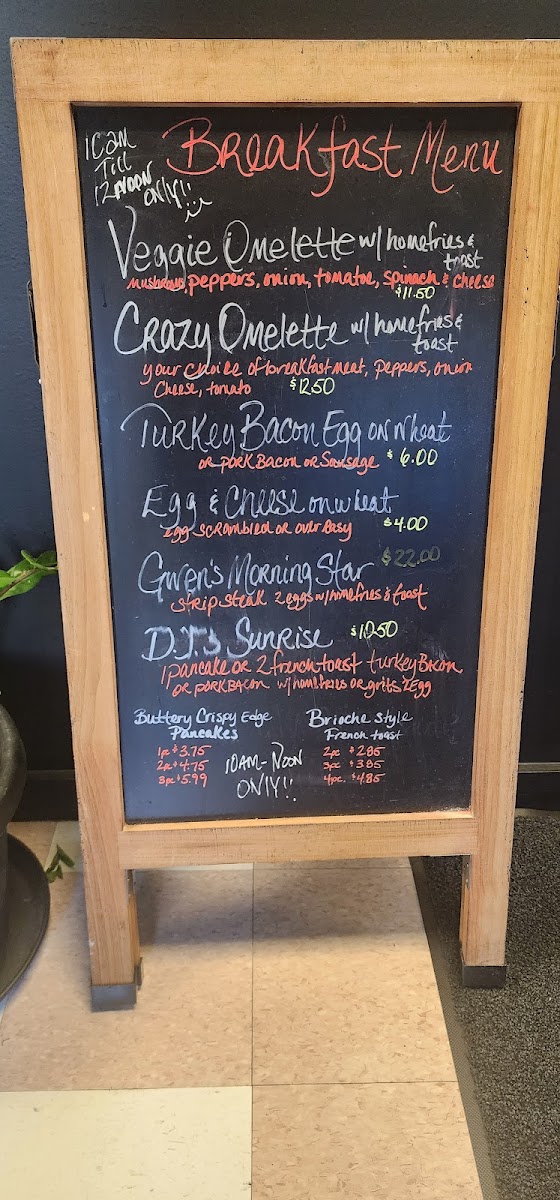 10am
Till
12 NOON
ONLY!!
Breakfast Menu
Veggie Omelette w/ homefries &
toast
mushroom, peppers, onion, tomatoe, spinach & cheese
$11.50
Crazy Omelette w/ homefries &
toast
your choice of breakfast meat, peppers, onion
Cheese, tomato $12.50
Turkey Bacon Egg on Wheat
or pork Bacon or Sausage $6.00
Egg & Cheese on wheat
egg scrambled or over easy $4.00
Gwen's Morning Star $22.00
strip steak 2 eggs w/ homefries & toast
D.J.'s Sunrise $10.50
1 pancake or 2 french toast turkey Bacon
or pork Bacon w/ homefries or grits 2 Egg
Buttery Crispy Edge
Pancakes
1pc $3.75
2pc $4.75
3pc $5.99
10AM-NOON
ONLY!!
Brioche Style
French toast
2pc $2.85
3pc $3.85
4pc. $4.85